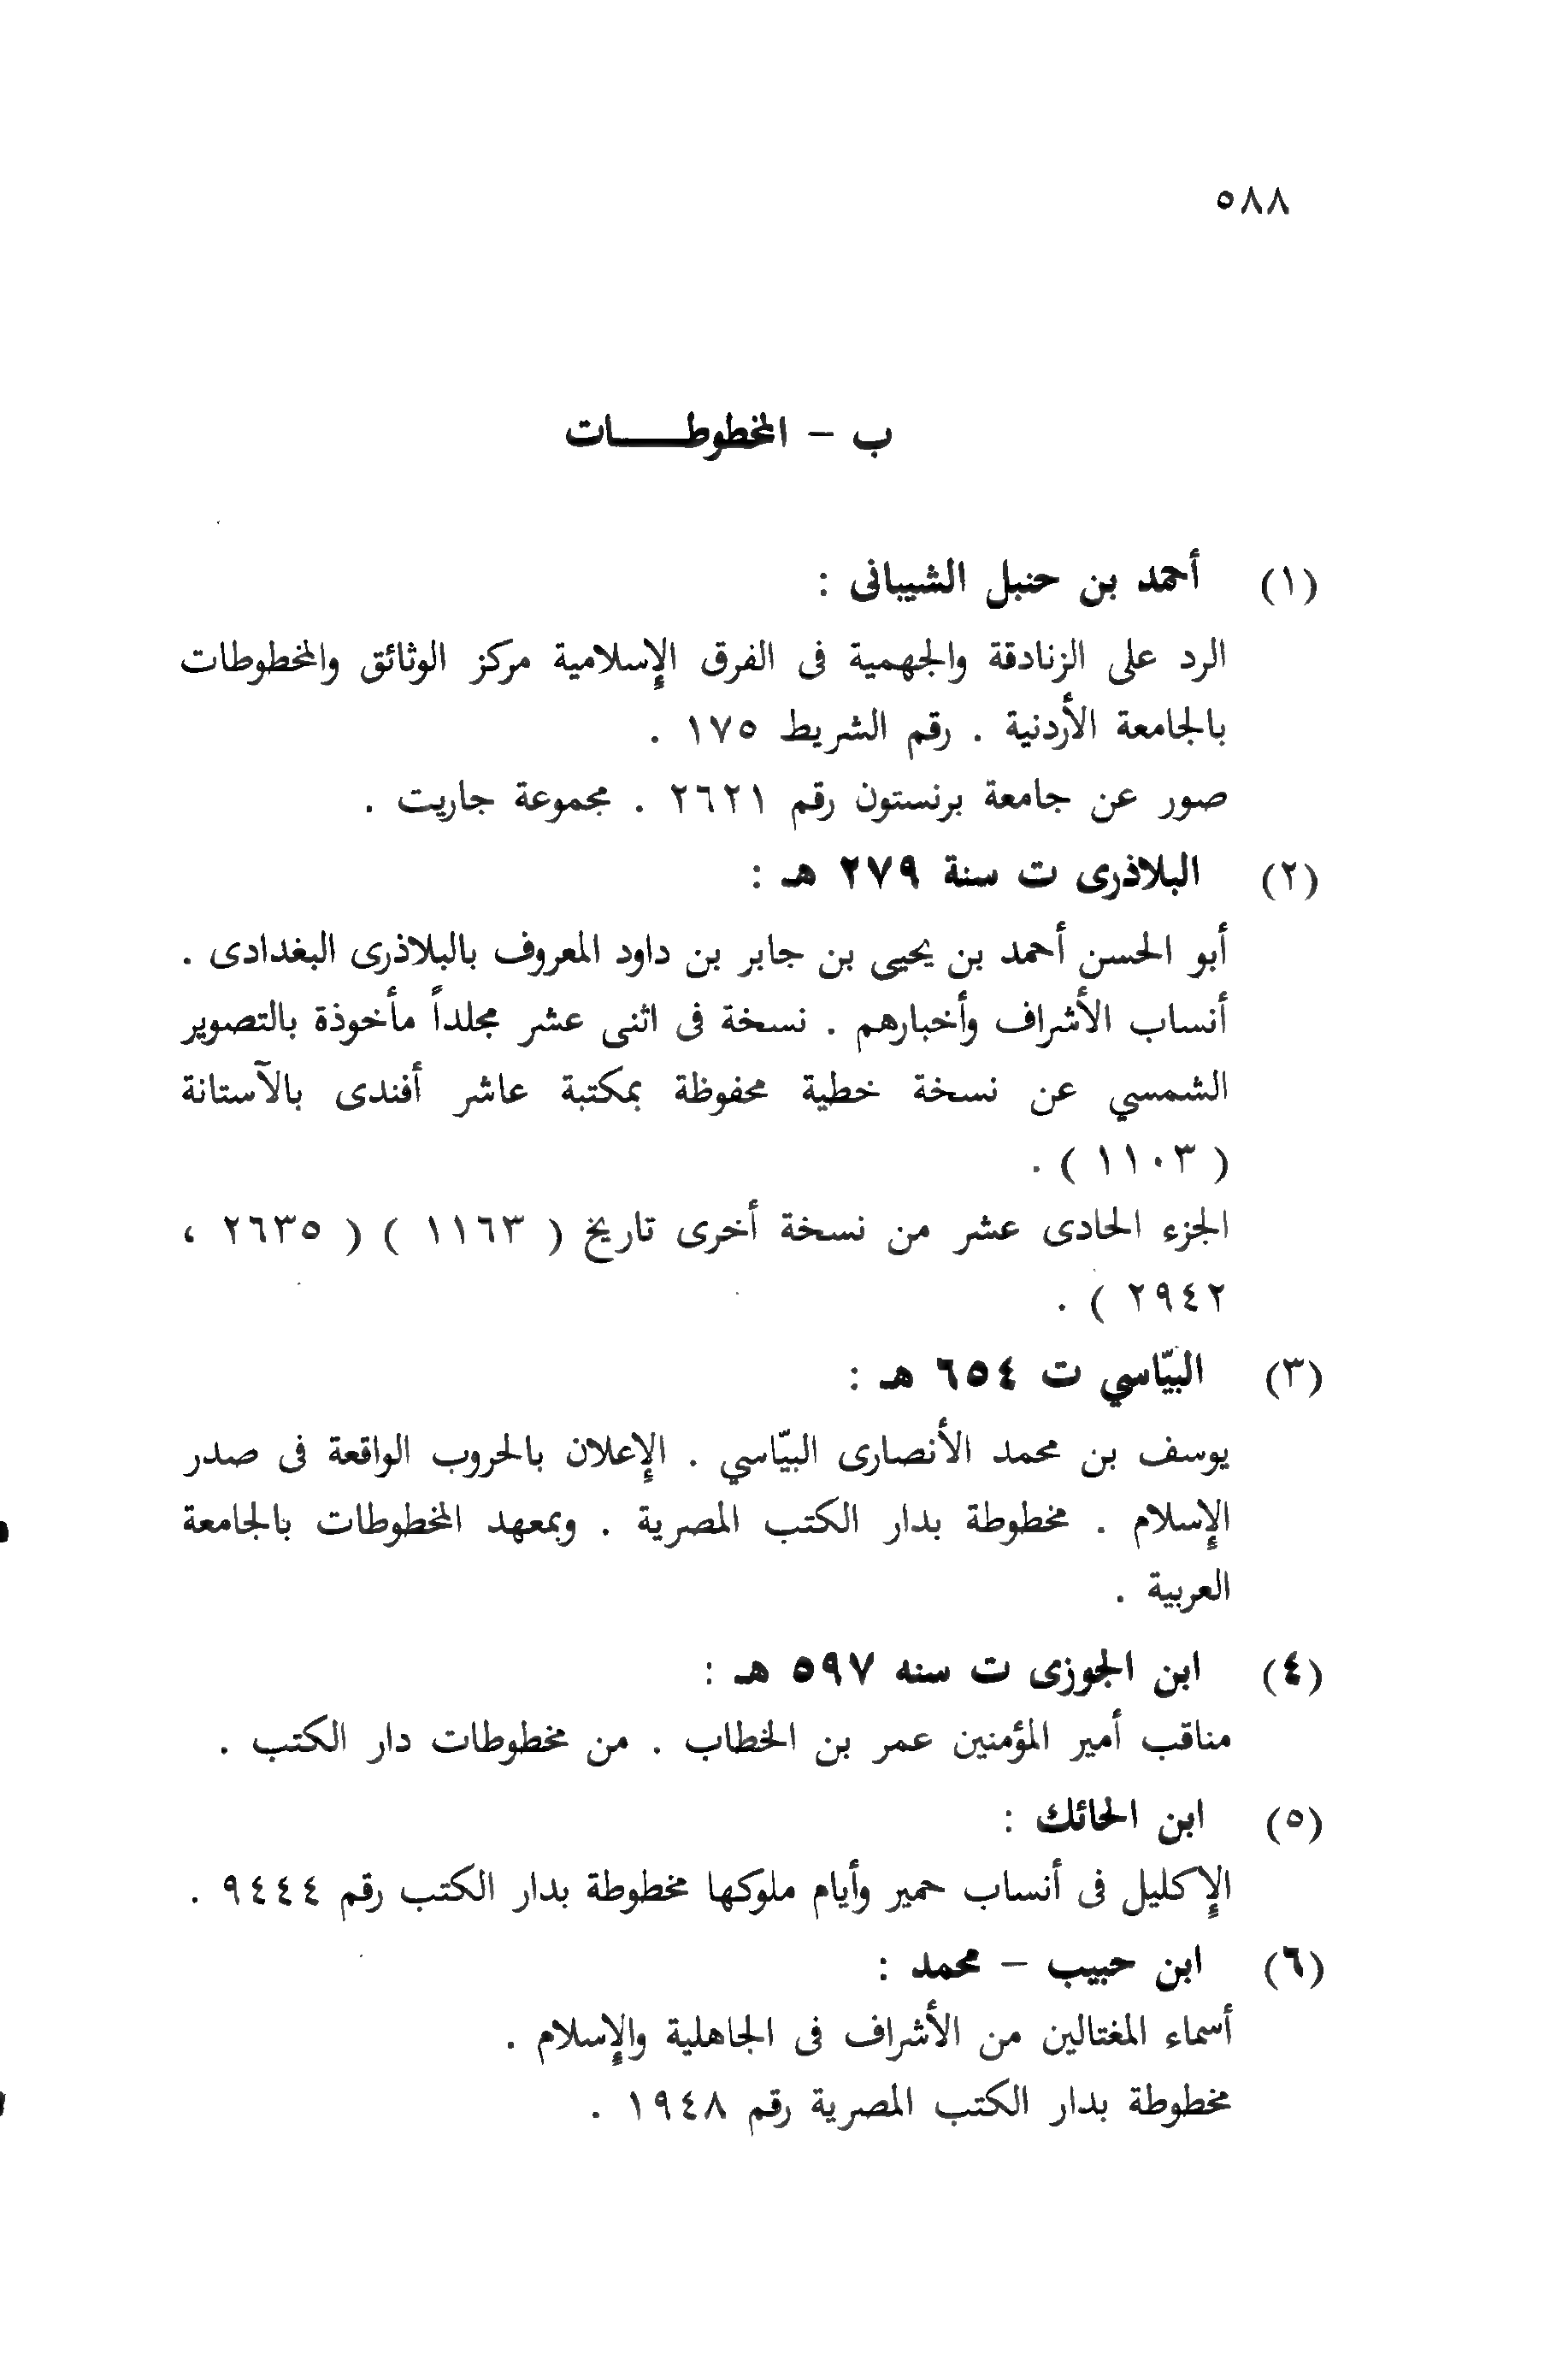 ٥٨٨
ب – المخطوطـــــات
(١) أحمد بن حنبل الشيبانى :
الرد على الزنادقة والجهمية فى الفرق الإسلامية مركز الوثائق والمخطوطات
بالجامعة الأردنية . رقم الشريط ١٧٥ .
صور عن جامعة برنستون رقم ٢٦٢١ . مجموعة جاريت .
(٢) البلاذرى ت سنة ٢٧٩ هـ :
أبو الحسن أحمد بن يحيى بن جابر بن داود المعروف بالبلاذرى البغدادى .
أنساب الأشراف وأخبارهم . نسخة فى اثنى عشر مجلداً مأخوذة بالتصوير
الشمسي عن نسخة خطية محفوظة بمكتبة عاشر أفندى بالآستانة
( ١١٠٣ ) .
الجزء الحادى عشر من نسخة أخرى تاريخ ( ١١٦٣ ) ( ٢٦٣٥ ،
٢٩٤٢ ) .
(٣) البيّاسي ت ٦٥٤ هـ :
يوسف بن محمد الأنصارى البيّاسي . الإعلان بالحروب الواقعة فى صدر
الإسلام . مخطوطة بدار الكتب المصرية . وبمعهد المخطوطات بالجامعة
العربية .
(٤) ابن الجوزى ت سنه ٥٩٧ هـ :
مناقب أمير المؤمنين عمر بن الخطاب . من مخطوطات دار الكتب .
(٥) ابن الحائك :
الإكليل فى أنساب حمير وأيام ملوكها مخطوطة بدار الكتب رقم ٩٤٤٤ .
(٦) ابن حبيب – محمد :
أسماء المغتالين من الأشراف فى الجاهلية والإسلام .
مخطوطة بدار الكتب المصرية رقم ١٩٤٨ .